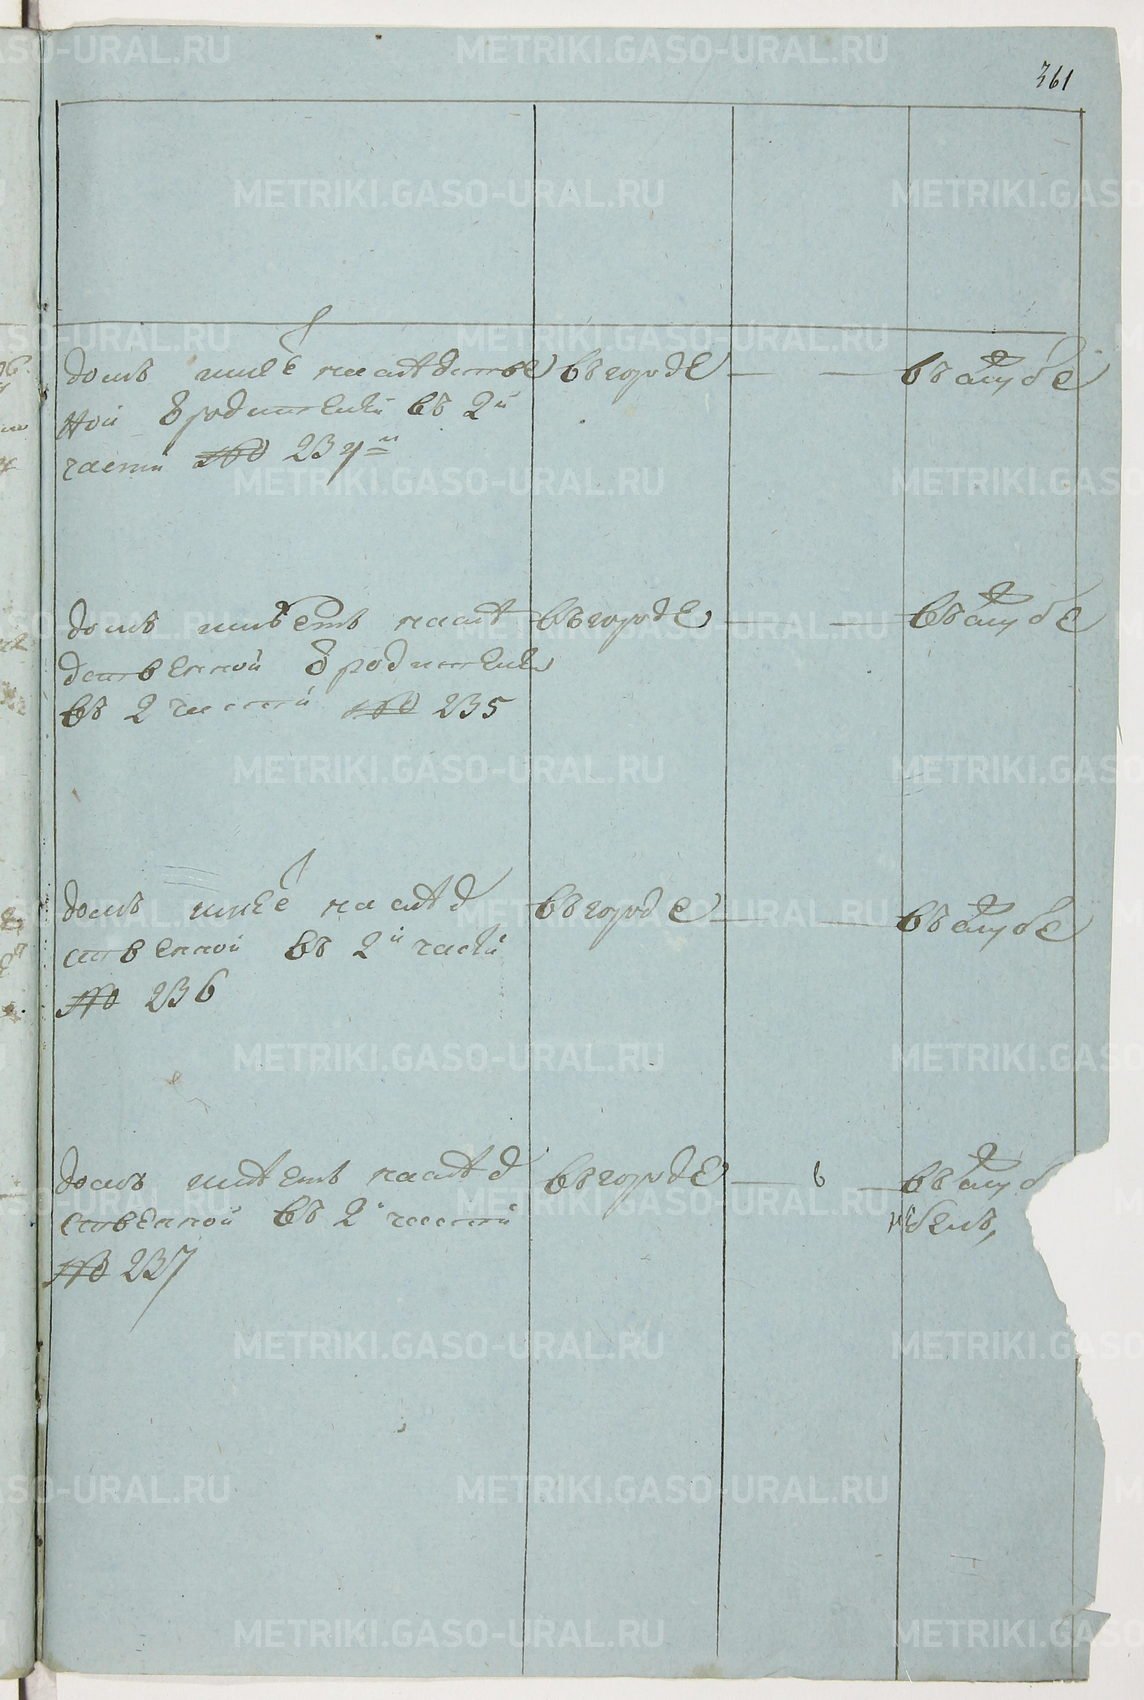 361
домъ имее наслѣдстве
ной Вродителей въ 2й
части №о 234м
въ городе
въ слу бе
домъ имѣетъ наслѣ
дственной Вродители
въ 2 части №о 235
въ городе
въ слу бе
домъ имее наслѣд
ственной въ 2й части
№о 236
въ городе
въ слу бе
домъ имѣетъ наслѣд
ственной въ 2й части
№о 237
въ городе
въ
METRIKI.GASO-URAL.RU